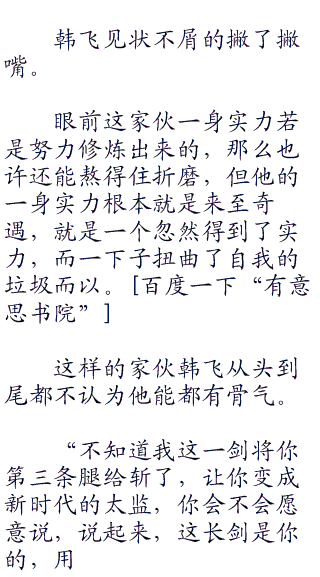 韩飞见状不屑的撇了撇
嘴。
眼前这家伙一身实力若
是努力修炼出来的，那么也
许还能熬得住折磨，但他的
一身实力根本就是来至奇
遇，就是一个忽然得到了实
力，而一下子扭曲了自我的
垃圾而以。[百度一下“有意
思书院”]
这样的家伙韩飞从头到
尾都不认为他能都有骨气。
“不知道我这一剑将你
第三条腿给斩了，让你变成
新时代的太监，你会不会愿
意说，说起来，这长剑是你
的，用